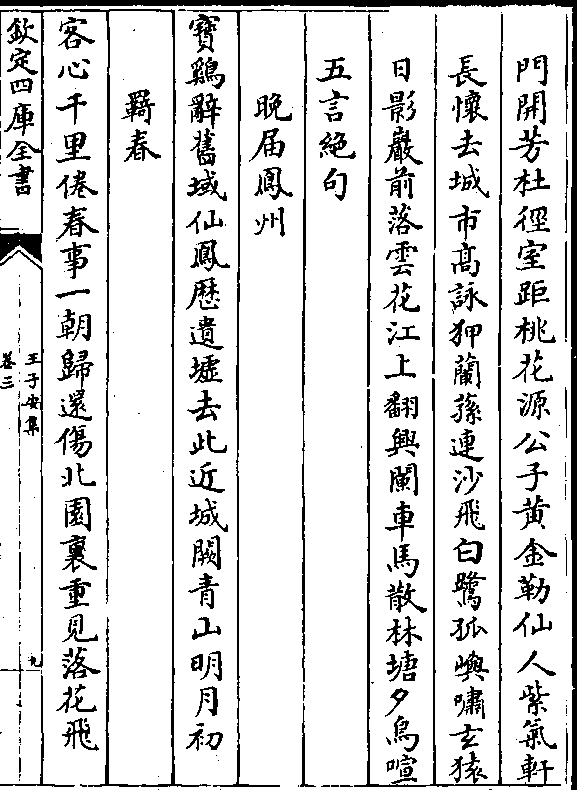 門開芳杜徑室距桃花源公子黃金勒仙人紫氣軒
長懷去城市高詠狎蘭蓀連沙飛白鷺孤嶼嘯玄猿
日影巖前落雲花江上翻興闌車馬散林塘夕鳥喧
五言絶句
晚届鳳州
寶鷄辭舊域仙鳳歴遺墟去此近城闕青山明月初
羇春
客心千里倦春事一朝歸還傷北園裏重見落花飛
欽定四庫全書
王子安集
卷三
九